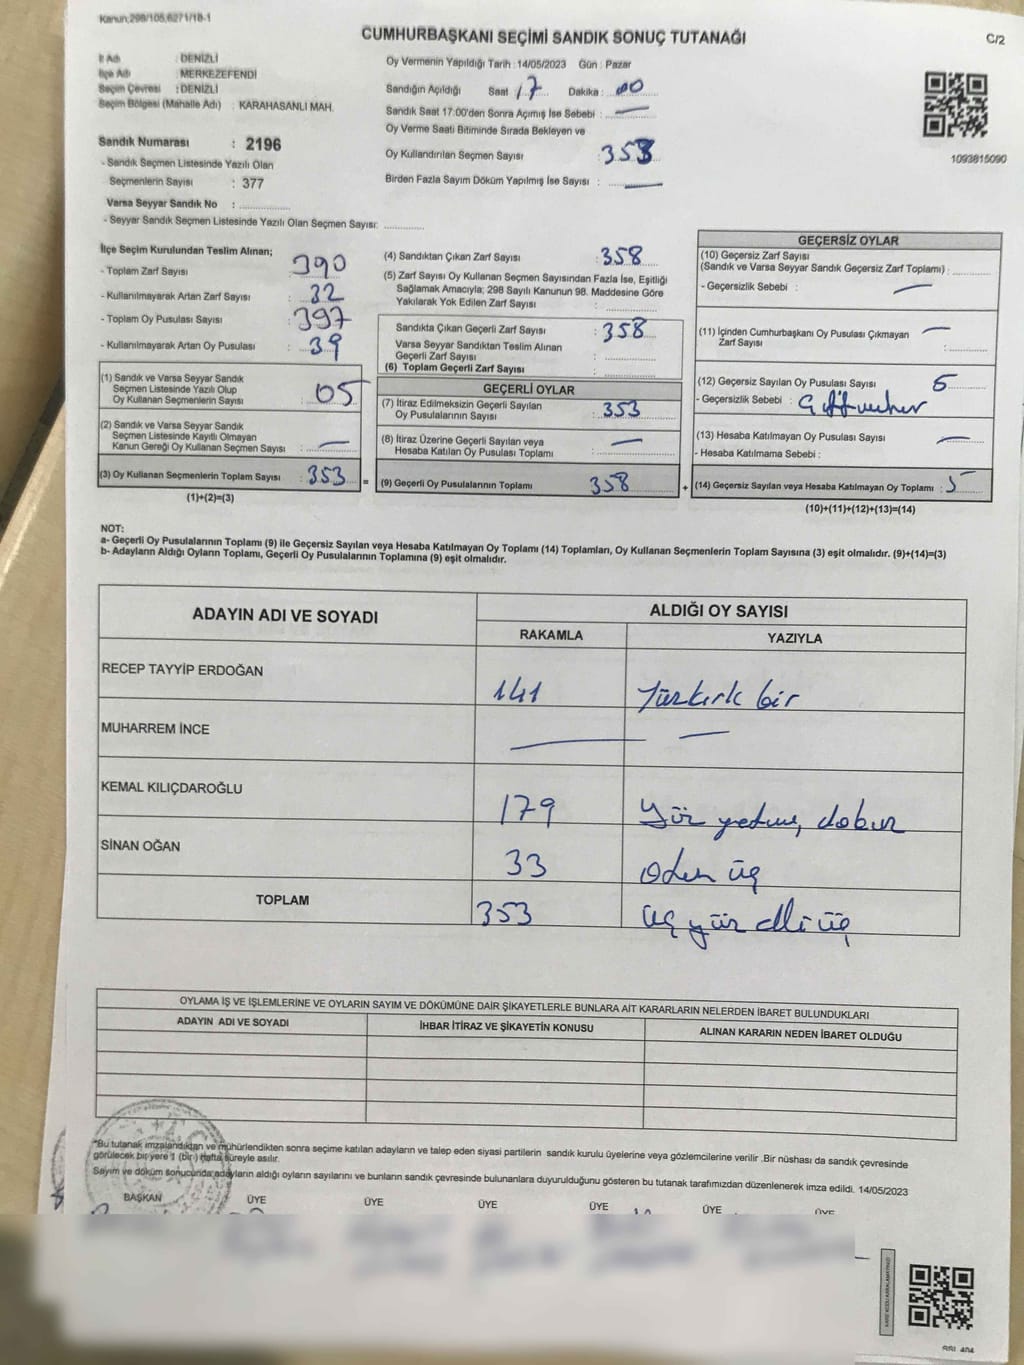 Kanun;298/105,6271/18-1
CUMHURBAŞKANI SEÇİMİ SANDIK SONUÇ TUTANAĞI
C/2
İl Adı : DENİZLİ
İlçe Adı : MERKEZEFENDİ
Seçim Çevresi : DENİZLİ
Seçim Bölgesi (Mahalle Adı) : KARAHASANLI MAH.
Sandık Numarası : 2196
- Sandık Seçmen Listesinde Yazılı Olan
Seçmenlerin Sayısı : 377
Varsa Seyyar Sandık No :
- Seyyar Sandık Seçmen Listesinde Yazılı Olan Seçmen Sayısı:
Oy Vermenin Yapıldığı Tarih : 14/05/2023 Gün : Pazar
Sandığın Açıldığı Saat : 17 Dakika : 00
Sandık Saat 17:00'den Sonra Açımış İse Sebebi : —
Oy Verme Saati Bitiminde Sırada Bekleyen ve
Oy Kullandırılan Seçmen Sayısı : 353
Birden Fazla Sayım Döküm Yapılmış İse Sayısı : —
1093815090
İlçe Seçim Kurulundan Teslim Alınan;
- Toplam Zarf Sayısı : 390
- Kullanılmayarak Artan Zarf Sayısı : 32
- Toplam Oy Pusulası Sayısı : 397
- Kullanılmayarak Artan Oy Pusulası : 39
(1) Sandık ve Varsa Seyyar Sandık
Seçmen Listesinde Yazılı Olup
Oy Kullanan Seçmenlerin Sayısı : 05
(2) Sandık ve Varsa Seyyar Sandık
Seçmen Listesinde Kayıtlı Olmayan
Kanun Gereği Oy Kullanan Seçmen Sayısı : —
(3) Oy Kullanan Seçmenlerin Toplam Sayısı : 353
(1)+(2)=(3)
=
(4) Sandıktan Çıkan Zarf Sayısı : 358
(5) Zarf Sayısı Oy Kullanan Seçmen Sayısından Fazla İse, Eşitliği
Sağlamak Amacıyla; 298 Sayılı Kanunun 98. Maddesine Göre
Yakılarak Yok Edilen Zarf Sayısı :
Sandıkta Çıkan Geçerli Zarf Sayısı : 358
Varsa Seyyar Sandıktan Teslim Alınan
Geçerli Zarf Sayısı :
(6) Toplam Geçerli Zarf Sayısı :
GEÇERLİ OYLAR
(7) İtiraz Edilmeksizin Geçerli Sayılan
Oy Pusulalarının Sayısı : 353
(8) İtiraz Üzerine Geçerli Sayılan veya
Hesaba Katılan Oy Pusulası Toplamı : —
(9) Geçerli Oy Pusulalarının Toplamı : 358
+
GEÇERSİZ OYLAR
(10) Geçersiz Zarf Sayısı
(Sandık ve Varsa Seyyar Sandık Geçersiz Zarf Toplamı) :
- Geçersizlik Sebebi : —
(11) İçinden Cumhurbaşkanı Oy Pusulası Çıkmayan
Zarf Sayısı : —
(12) Geçersiz Sayılan Oy Pusulası Sayısı : 5
- Geçersizlik Sebebi :
(13) Hesaba Katılmayan Oy Pusulası Sayısı : —
- Hesaba Katılmama Sebebi :
(14) Geçersiz Sayılan veya Hesaba Katılmayan Oy Toplamı : 5
(10)+(11)+(12)+(13)=(14)
NOT:
a- Geçerli Oy Pusulalarının Toplamı (9) ile Geçersiz Sayılan veya Hesaba Katılmayan Oy Toplamı (14) Toplamları, Oy Kullanan Seçmenlerin Toplam Sayısına (3) eşit olmalıdır. (9)+(14)=(3)
b- Adayların Aldığı Oyların Toplamı, Geçerli Oy Pusulalarının Toplamına (9) eşit olmalıdır.
ADAYIN ADI VE SOYADI
ALDIĞI OY SAYISI
RAKAMLA YAZIYLA
RECEP TAYYİP ERDOĞAN 141 Yüzkırk bir
MUHARREM İNCE — —
KEMAL KILIÇDAROĞLU 179 Yüz yetmiş dokuz
SİNAN OĞAN 33 Otuz üç
TOPLAM 353 Üç yüz elli üç
OYLAMA İŞ VE İŞLEMLERİNE VE OYLARIN SAYIM VE DÖKÜMÜNE DAİR ŞİKAYETLERLE BUNLARA AİT KARARLARIN NELERDEN İBARET BULUNDUKLARI
ADAYIN ADI VE SOYADI İHBAR İTİRAZ VE ŞİKAYETİN KONUSU ALINAN KARARIN NEDEN İBARET OLDUĞU
*Bu tutanak imzalandıktan ve mühürlendikten sonra seçime katılan adayların ve talep eden siyasi partilerin sandık kurulu üyelerine veya gözlemcilerine verilir .Bir nüshası da sandık çevresinde
görülecek bir yere 1 (bir) hafta süreyle asılır.
Sayım ve döküm sonucunda adayların aldığı oyların sayılarını ve bunların sandık çevresinde bulunanlara duyurulduğunu gösteren bu tutanak tarafımızdan düzenlenerek imza edildi. 14/05/2023
BAŞKAN ÜYE ÜYE ÜYE ÜYE ÜYE ÜYE